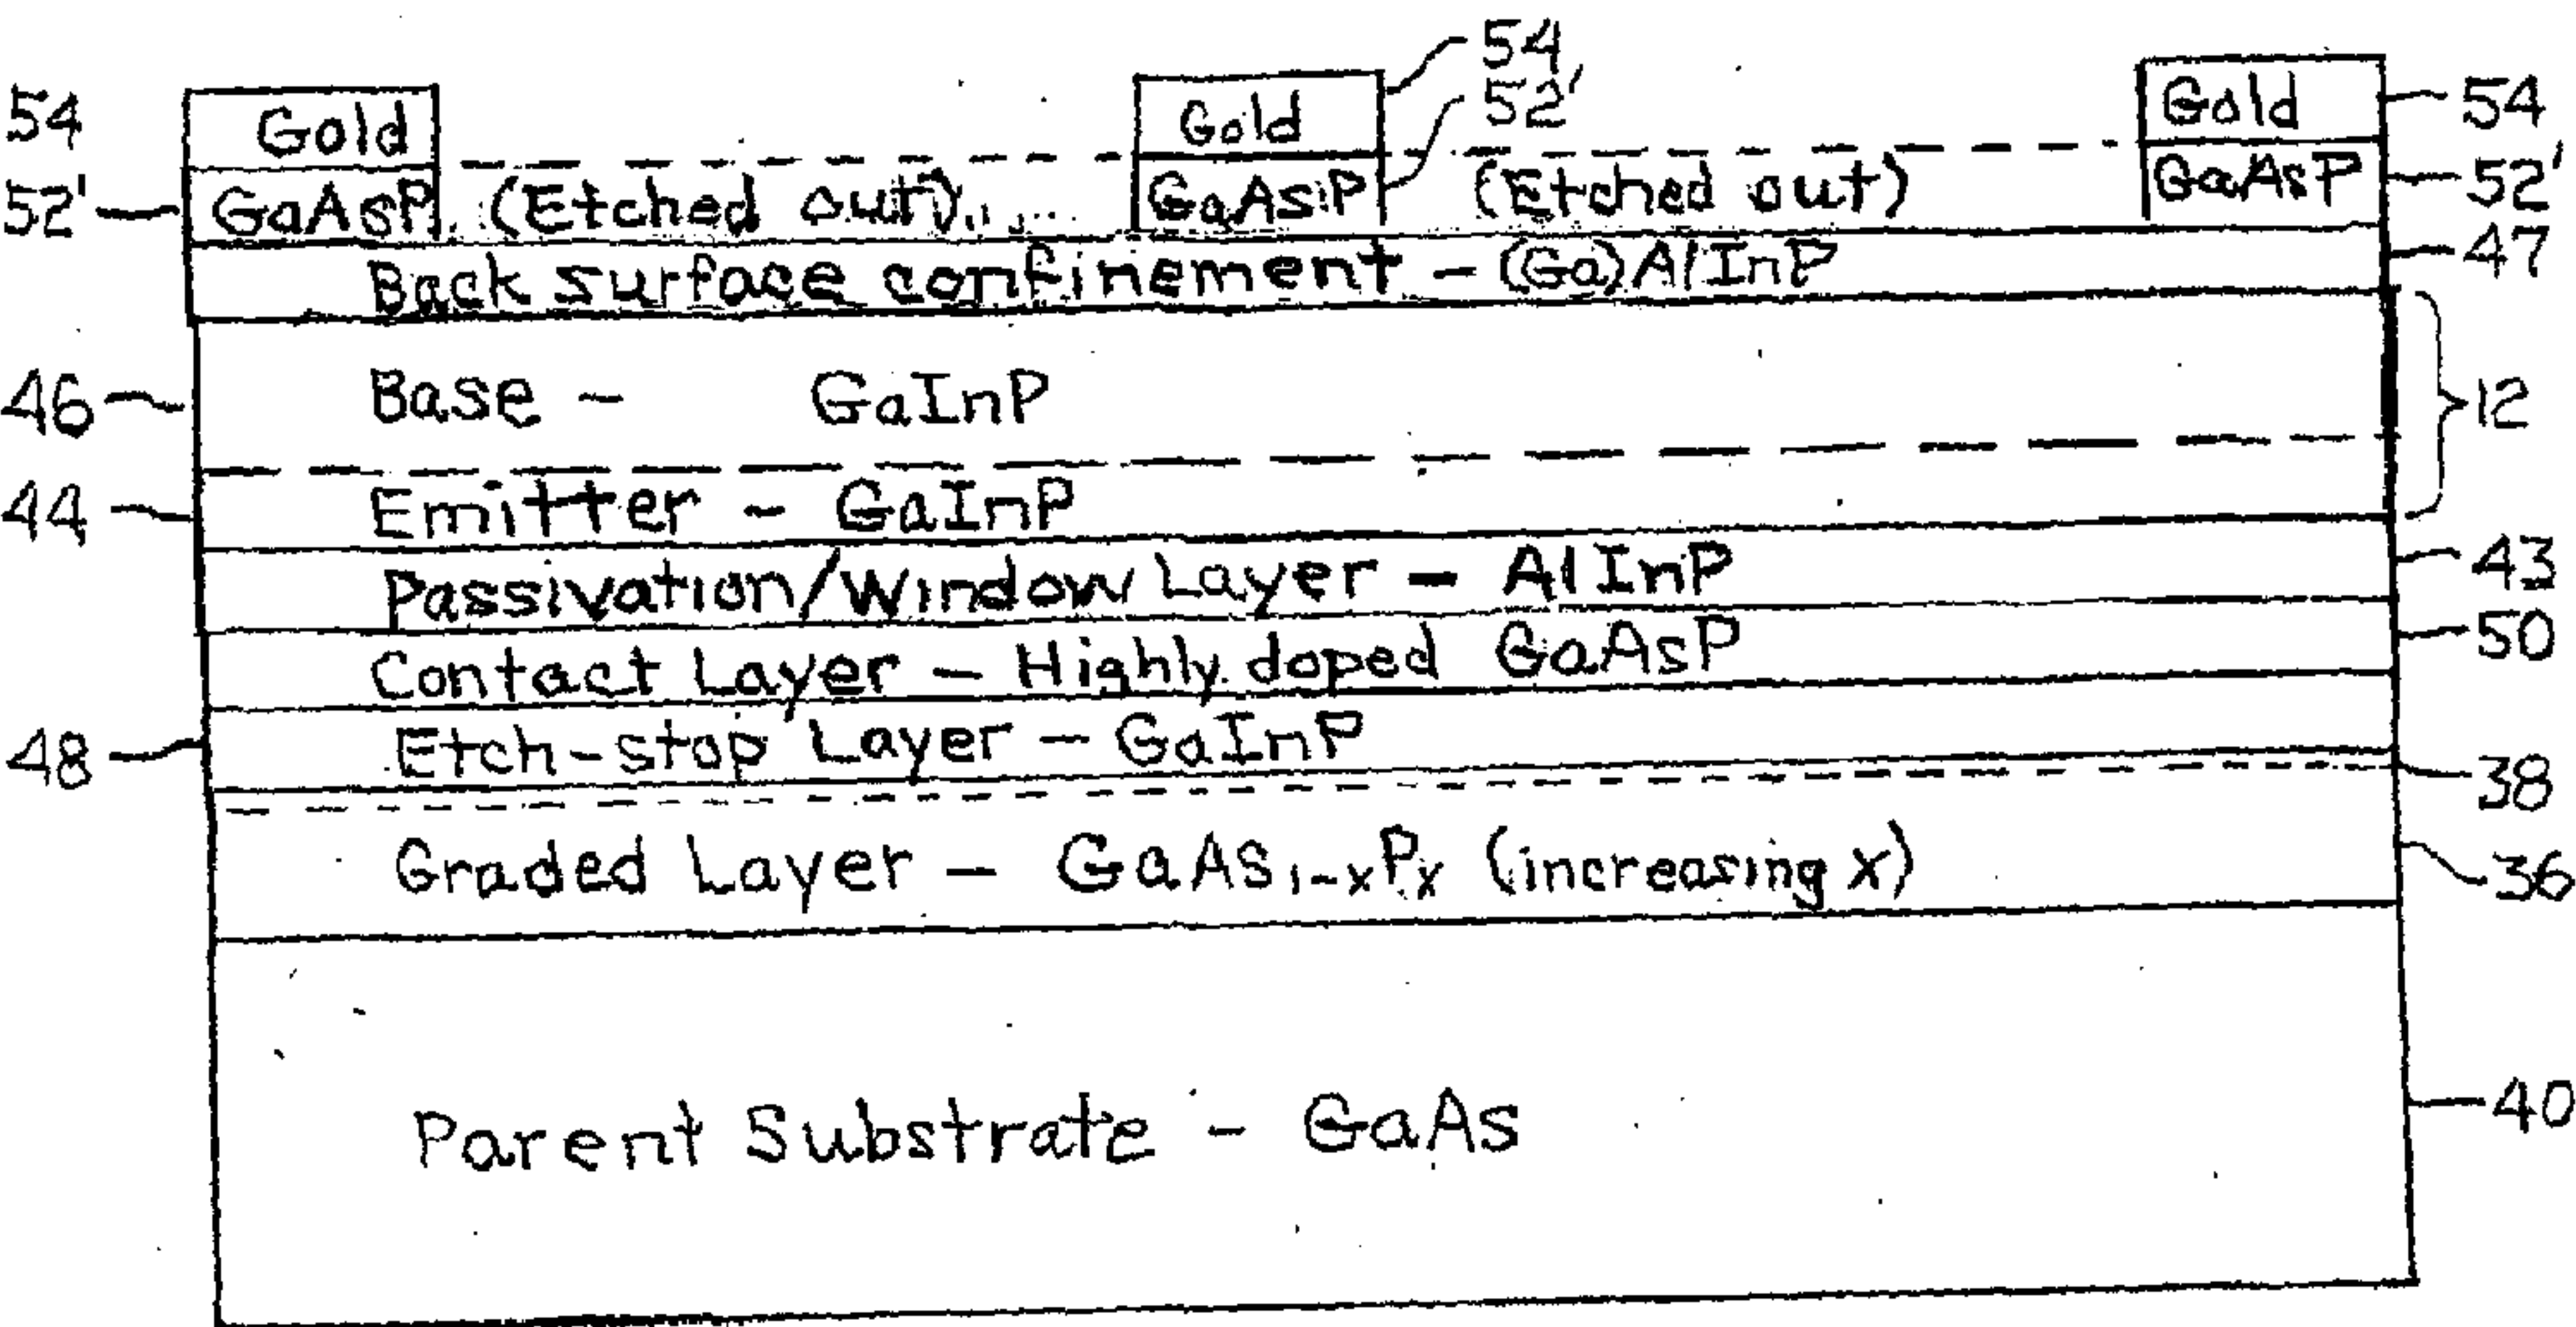 54
54 Gold Gold 52' Gold 54
52' GaAsP (Etched out) GaAsP (Etched out) GaAsP 52'
Back surface confinement - (Ga)AlInP 47
46 Base - GaInP 12
44 Emitter - GaInP
Passivation/Window Layer - AlInP 43
Contact Layer - Highly doped GaAsP 50
48 Etch-stop Layer - GaInP
38
Graded Layer - GaAs₁₋ₓPₓ (increasing x) 36
Parent Substrate - GaAs 40